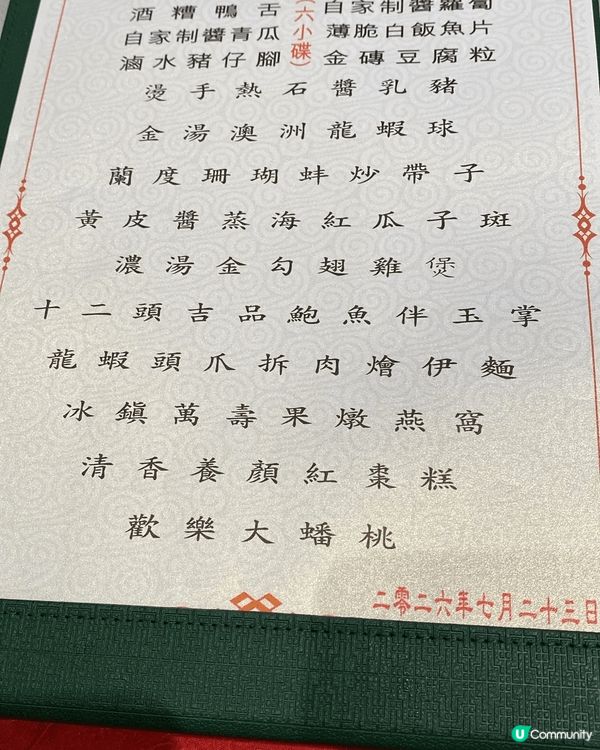 酒糟鴨舌
自家制醬青瓜
滷水豬仔腳
(六小碟)
自家制醬蘿蔔
薄脆白飯魚片
金磚豆腐粒
燙手熱石醬乳豬
金湯澳洲龍蝦球
蘭度珊瑚蚌炒帶子
黃皮醬蒸海紅瓜子斑
濃湯金勾翅雞煲
十二頭吉品鮑魚伴玉掌
龍蝦頭爪拆肉燴伊麵
冰鎮萬壽果燉燕窩
清香養顏紅棗糕
歡樂大蟠桃
二零二六年七月二十三日
U Community